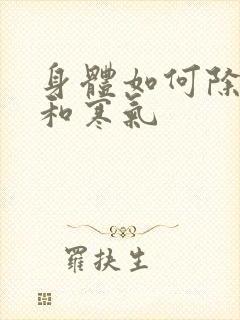 身體如何除
和寒氣
羅扶生